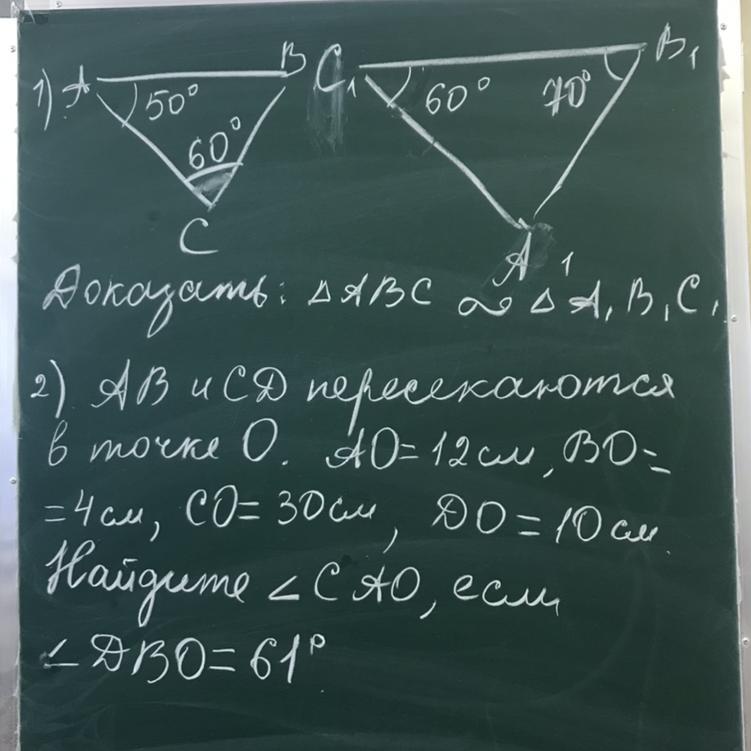 1) A B C₁ B₁
50° 60° 70°
60°
C A₁
Доказать: △ABC ∾ △A₁B₁C₁
2) AB и CD пересекаются
в точке O. AO=12см, BO=
=4см, CO=30см, DO=10см.
Найдите ∠CAO, если
∠DBO=61°